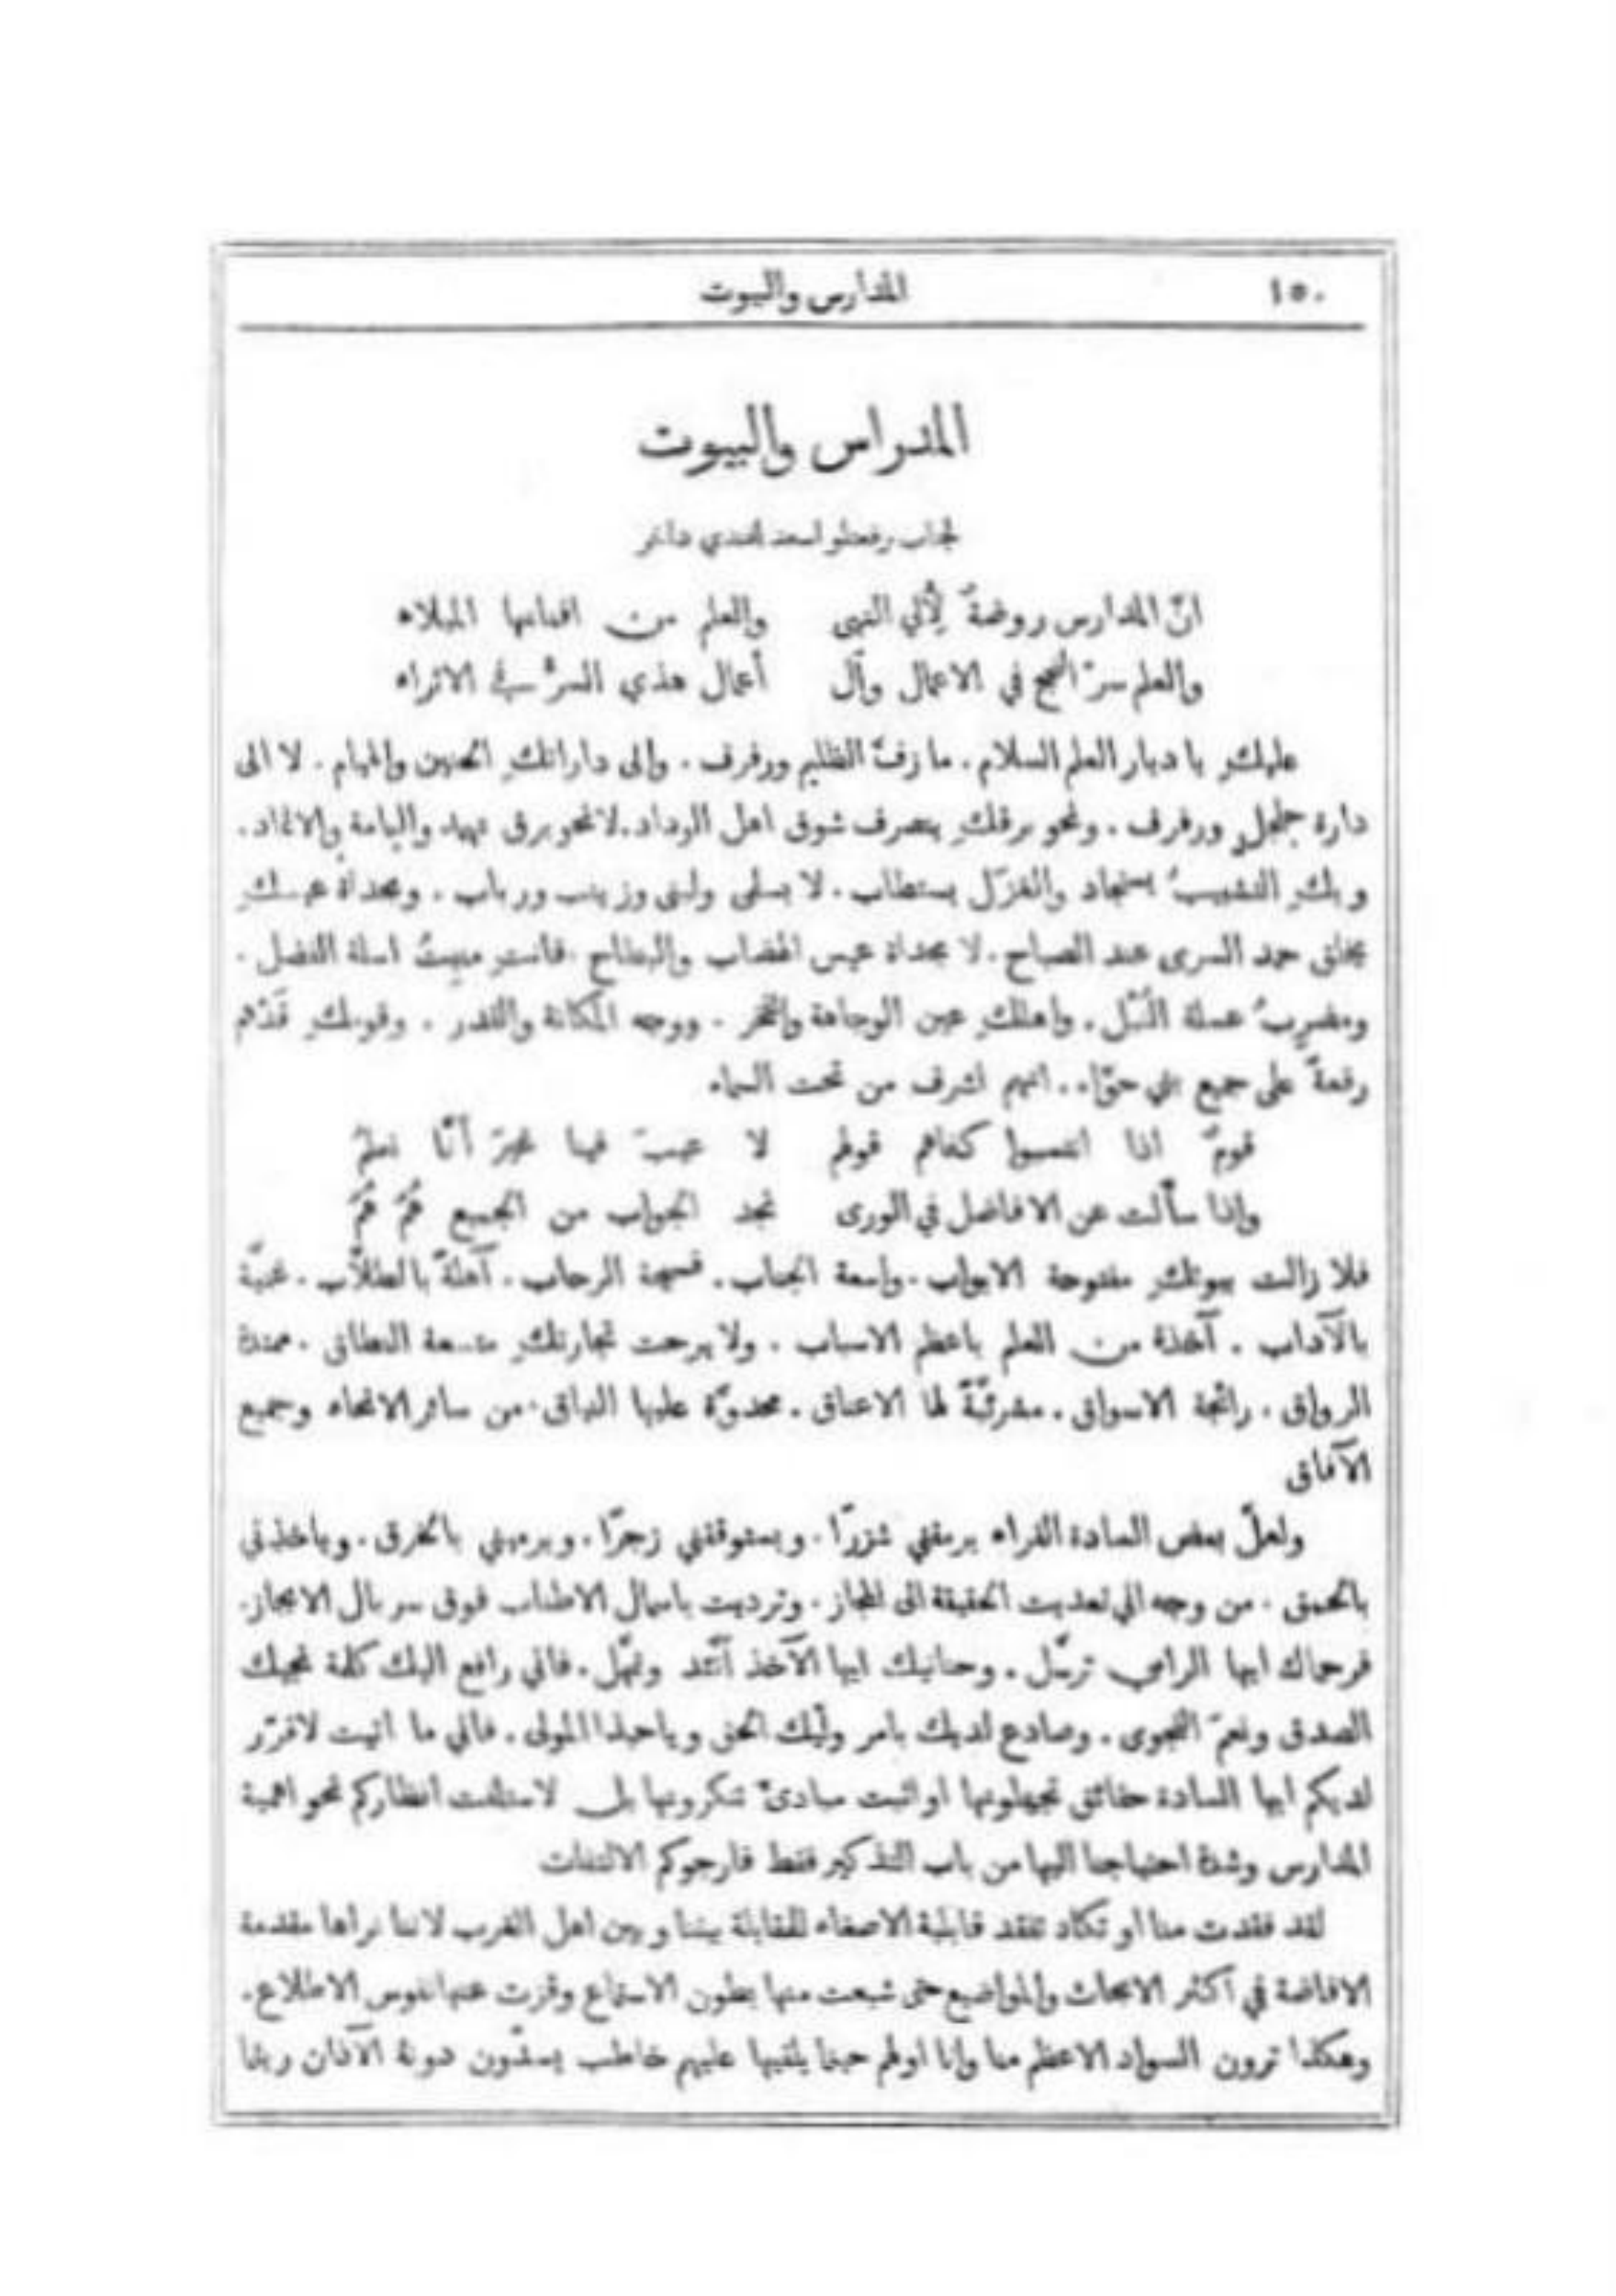 ١٥٠ المدارس والبيوت
المدراس والبيوت
لجناب رفعتلو اسعد افندي داغر
انّ المدارس روضةٌ لِأُلي النهى والعلم من افنانها الميلاء
والعلم سرّ النجح في الاعمال وآل أعمال هذي السرُّ في الاثراء
عليكِ يا ديار العلم السلام. ما زفّ الظليم ورفرف. وإلى داراتكِ الحنين والهيام. لا الى
دارة جلجلٍ ورفرف. ونحو برقكِ ينصرف شوق اهل الوداد. لا نحو برق ثهمد واليامة والاثماد.
وبكِ التشبيبُ يستجاد والغزَل يستطاب. لا بسلمى ولبنى وزينب ورباب. وبحداة عيسكِ
يخلق حمد السرى عند الصباح. لا بحداة عيس الهضاب والبطاح. فانتِ منبِتُ اسلة الفضل.
ومضرِبُ عسلة النُبْل. واهلكِ عين الوجاهة والفخر. ووجه المكانة والقدر. وقومكِ قَدْهم
رفعةً على جميع بني حوّاء. انهم اشرف من تحت السماء
قومٌ اذا انتسبوا كفاهم قولهم لا عيبَ فينا غيرَ أنَّا نعلمُ
واذا سألت عن الافاضل في الورى تجد الجواب من الجميع هُمُ هُمُ
فلا زالت بيوتكِ مفتوحة الابواب. واسعة الجناب. فسيحة الرحاب. آهلةً بالطلاَّب. غنيَّة
بالآداب. آخذة من العلم باعظم الاسباب. ولا برحت تجارتكِ متسعة النطاق. ممتدة
الرواق. رائجة الاسواق. مشرئبَّةً لها الاعناق. محدوَّة عليها النياق. من سائر الانحاء وجميع
الآفاق
ولعلّ بعض السادة القراء يرمقني شزرًا. ويستوقفني زجرًا. ويرميني بالخرق. وياخذني
بالحمق. من وجه اني تعديت الحقيقة الى المجاز. وترديت باسمال الاطناب فوق سربال الايجاز.
فرحماك ايها الرامي ترسَّل. وحنانيك ايها الآخذ اتَّئد وتمهَّل. فاني رافع اليك كلمة نجيك
الصدق ونعمَ النجوى. وصادع لديك بامر وليّك الحق وياحبذا المولى. فاني ما اتيت لاقرّر
لديكم ايها السادة حقائق تجهلونها او اثبت مبادئ تنكرونها بل لاستلفت انظاركم نحو اهمية
المدارس وشدة احتياجنا اليها من باب التذكير فقط فارجوكم الالتفات
لقد فقدت منا او تكاد تفقد قابلية الاصغاء للمقابلة بيننا وبين اهل الغرب لاننا نراها مقدمة
الافاضة في اكثر الابحاث والمواضيع حتى شبعت منها بطون الاستماع وقزت عنها نفوس الاطلاع.
وهكذا ترون السواد الاعظم منا وانا اولهم حينما يلقيها عليهم خاطب يسدّون دونهُ الآذان ريثما